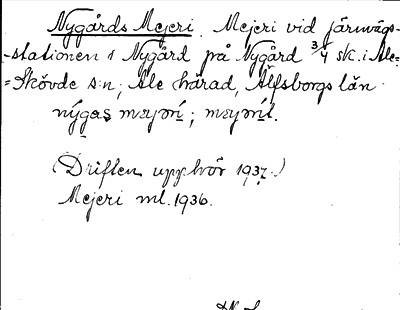 Nygårds Mejeri. Mejeri vid järnvägs-
-stationen i Nygård på Nygård 3/4 sk. i Ale-
=Skövde s:n; Ale härad, Älfsborgs län
nýgas
(Driften upphör 1937.)
Mejeri ml. 1936.